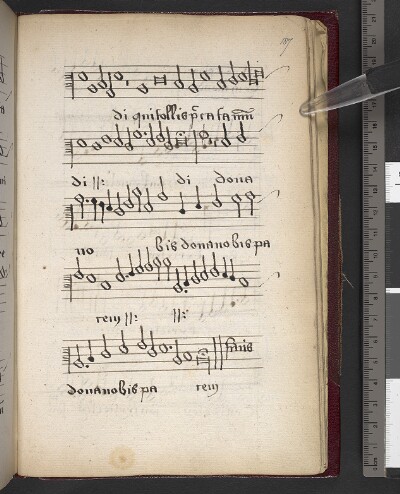 187
di qui tollis pccata mūn
di :||: di dona
no bis dona nobis pa
cem :||: :||:
finis
dona nobis pa cem